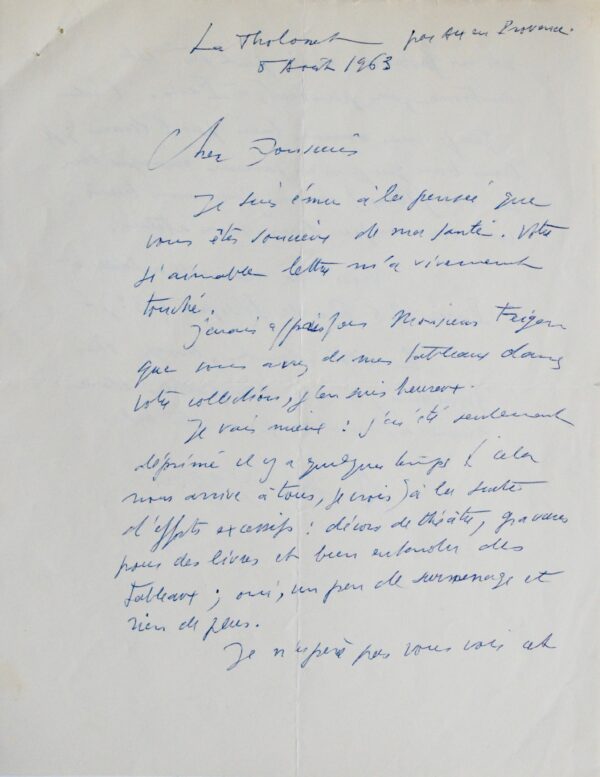 Le Tholonet par Aix en Provence
8 Août 1963
Cher Monsieur
Je suis ému à la pensée que
vous êtes soucieux de ma santé. Votre
si aimable lettre m'a vivement
touché.
J'avais appris par Monsieur
que vous avez de mes tableaux dans
votre collection, j'en suis heureux.
Je vais mieux : j'ai été seulement
déprimé il y a quelque temps (cela
nous arrive à tous, je crois) à la suite
d'efforts excessifs : décors de théâtre, gravures
pour des livres et bien entendu des
tableaux ; oui, un peu de surmenage et
rien de plus.
Je n'espère pas vous voir cet